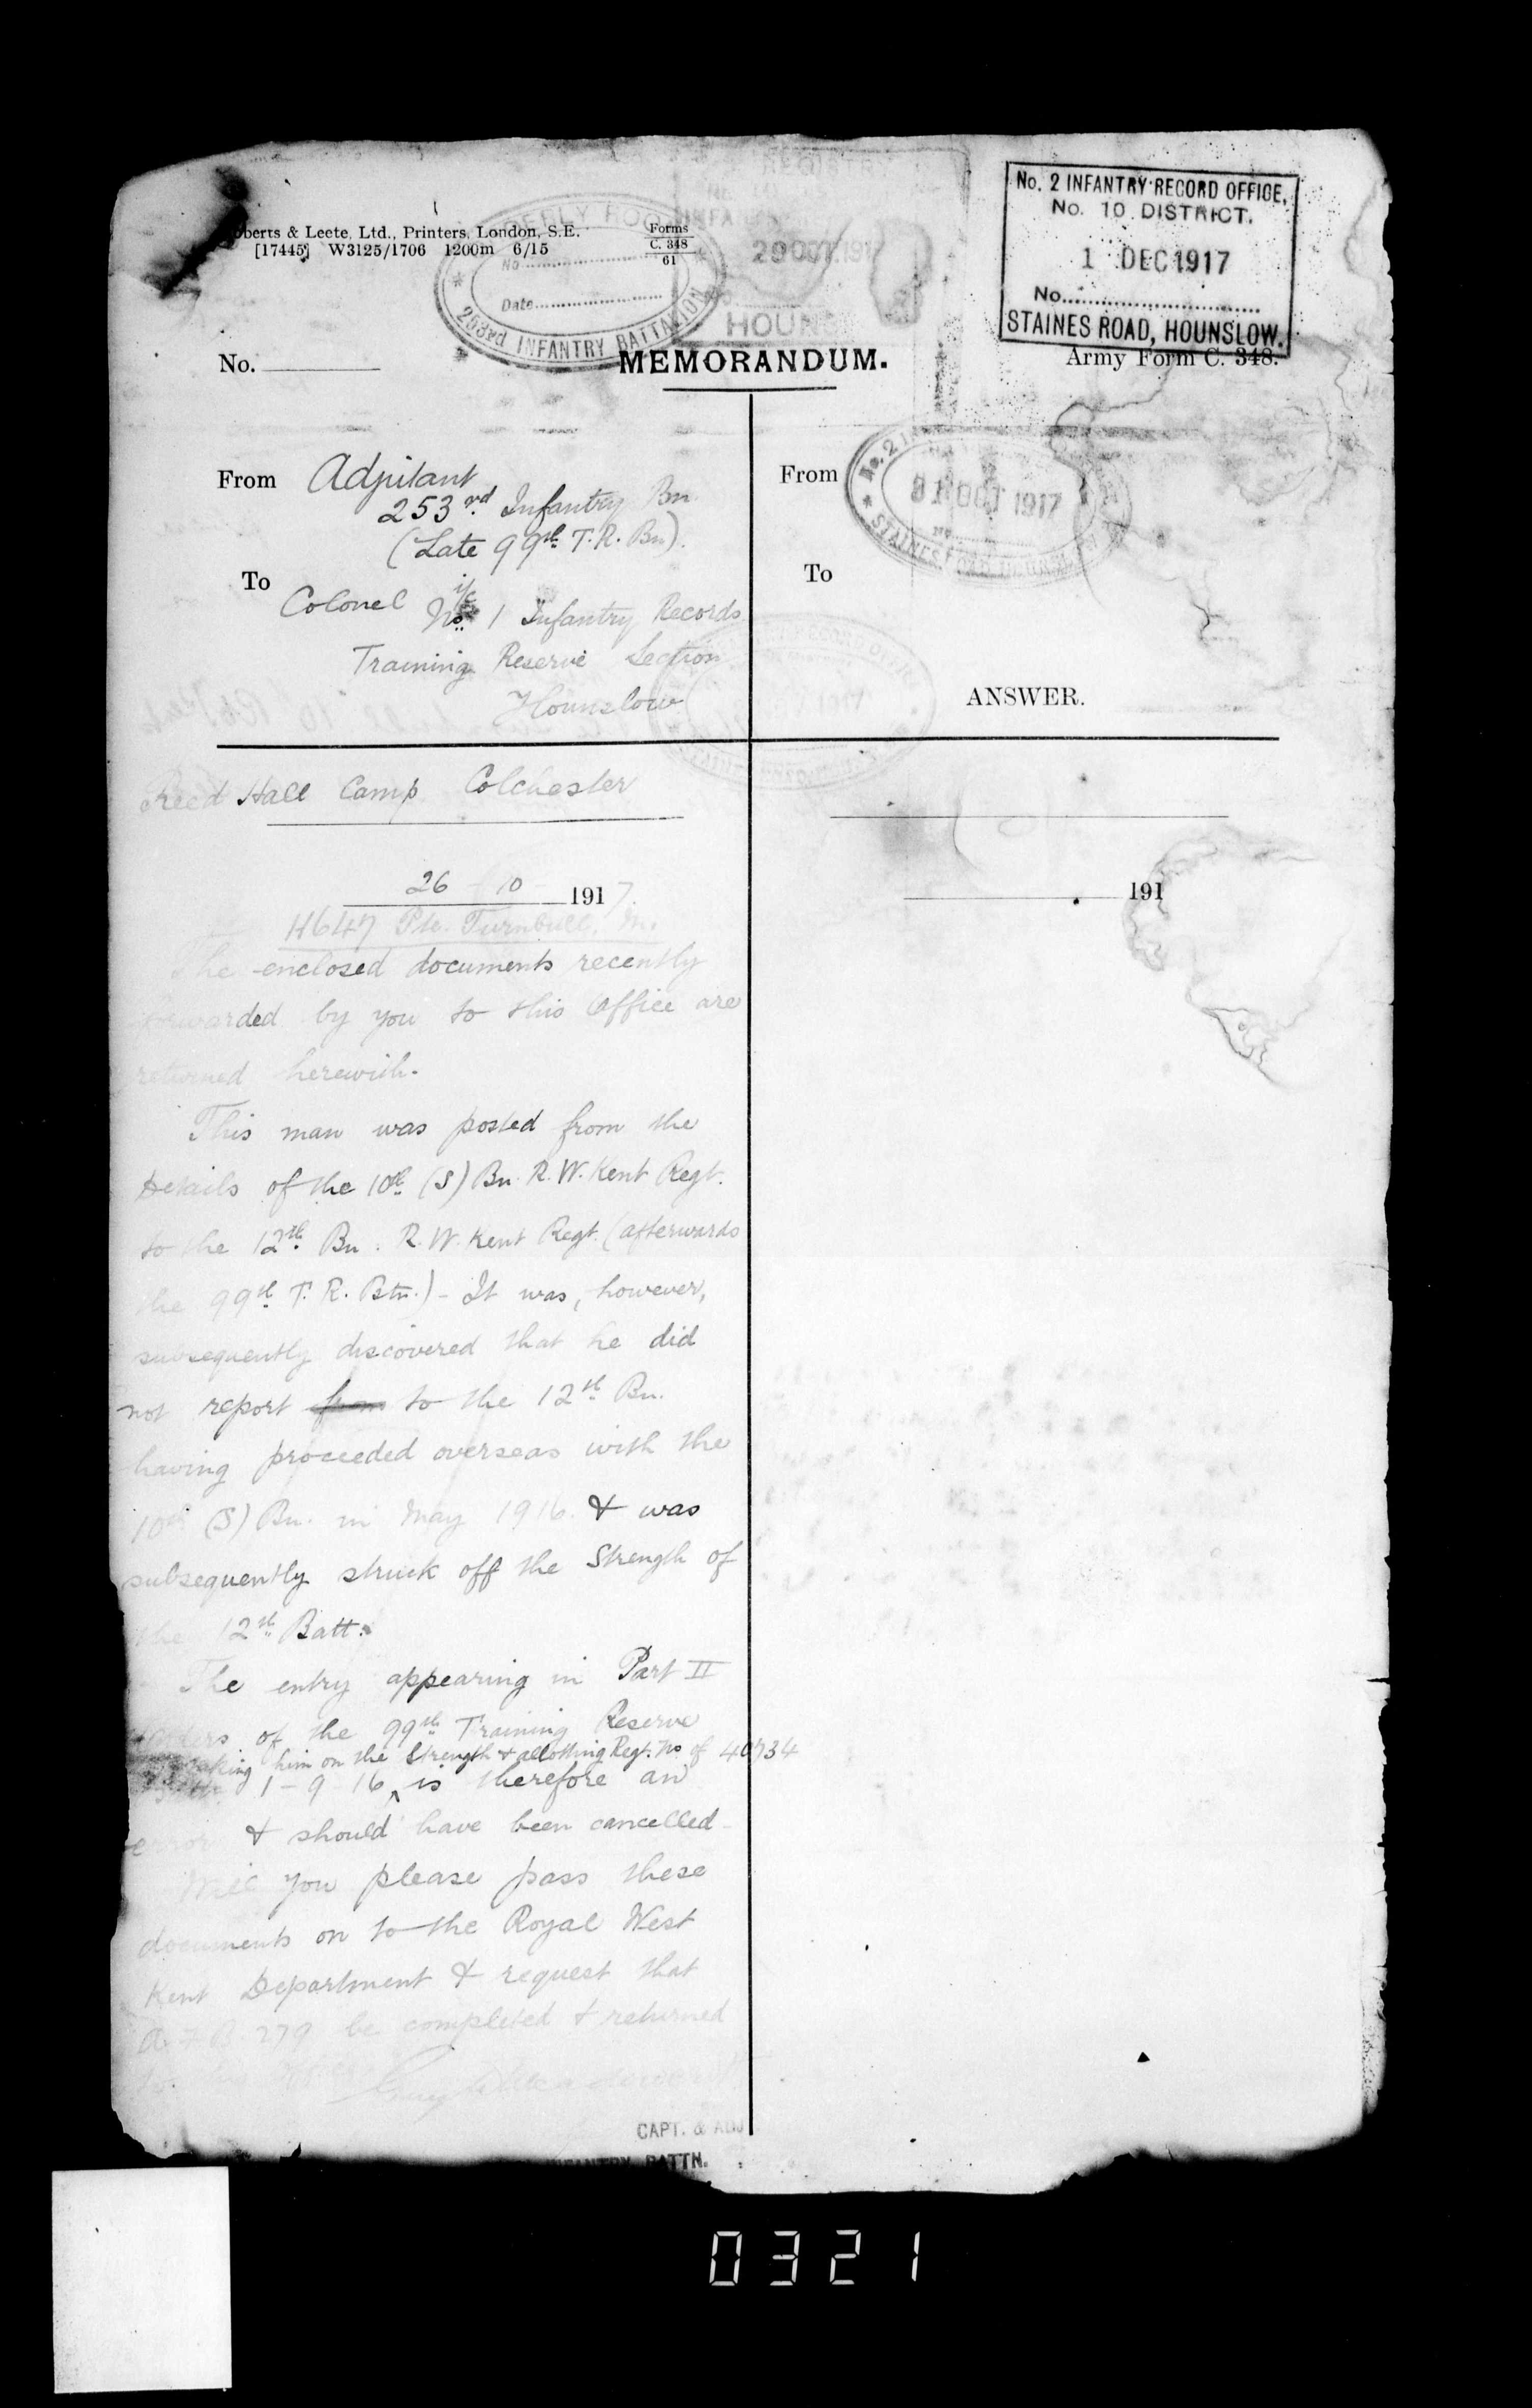 Roberts & Leete, Ltd., Printers, London, S.E.
[17445] W3125/1706 1200m 6/15
Forms
C. 348
61
ORDERLY ROOM
No
Date
253rd INFANTRY BATTALION
REGISTRY
INFAN
29 OCT. 191
HOUNS
No. 2 INFANTRY RECORD OFFICE,
No. 10 DISTRICT.
1 DEC 1917
No.
STAINES ROAD, HOUNSLOW.
Army Form C. 348.
No.
MEMORANDUM.
From Adjutant
253rd Infantry Bn
(Late 99th T.R. Bn).
To
Colonel i/c
No. 1 Infantry Records
Training Reserve Section
Hounslow
From
No. 2
31 OCT 1917
No
STAINES ROAD HOUNSLOW
To
ANSWER.
Reed Hall Camp Colchester
26 - 10 - 1917.
191
11647 Pte. Turnbull. M.
The enclosed documents recently
forwarded by you to this Office are
returned herewith.
This man was posted from the
Details of the 10th (S) Bn. R. W. Kent Regt.
to the 12th Bn. R. W. Kent Regt. (afterwards
the 99th T. R. Btn.) - It was, however,
subsequently discovered that he did
not report from to the 12th Bn.
having proceeded overseas with the
10th (S) Bn. in May 1916. & was
subsequently struck off the Strength of
the 12th Batt.
The entry appearing in Part II
Orders of the 99th Training Reserve
taking him on the Strength & allotting Regt. No of 40734
1 - 9 16 ^ is therefore an
error & should have been cancelled
Will you please pass these
documents on to the Royal West
Kent Department & request that
A.F.B. 279 be completed & returned
to
CAPT. & ADJ
INFANTRY BATTN.
0321